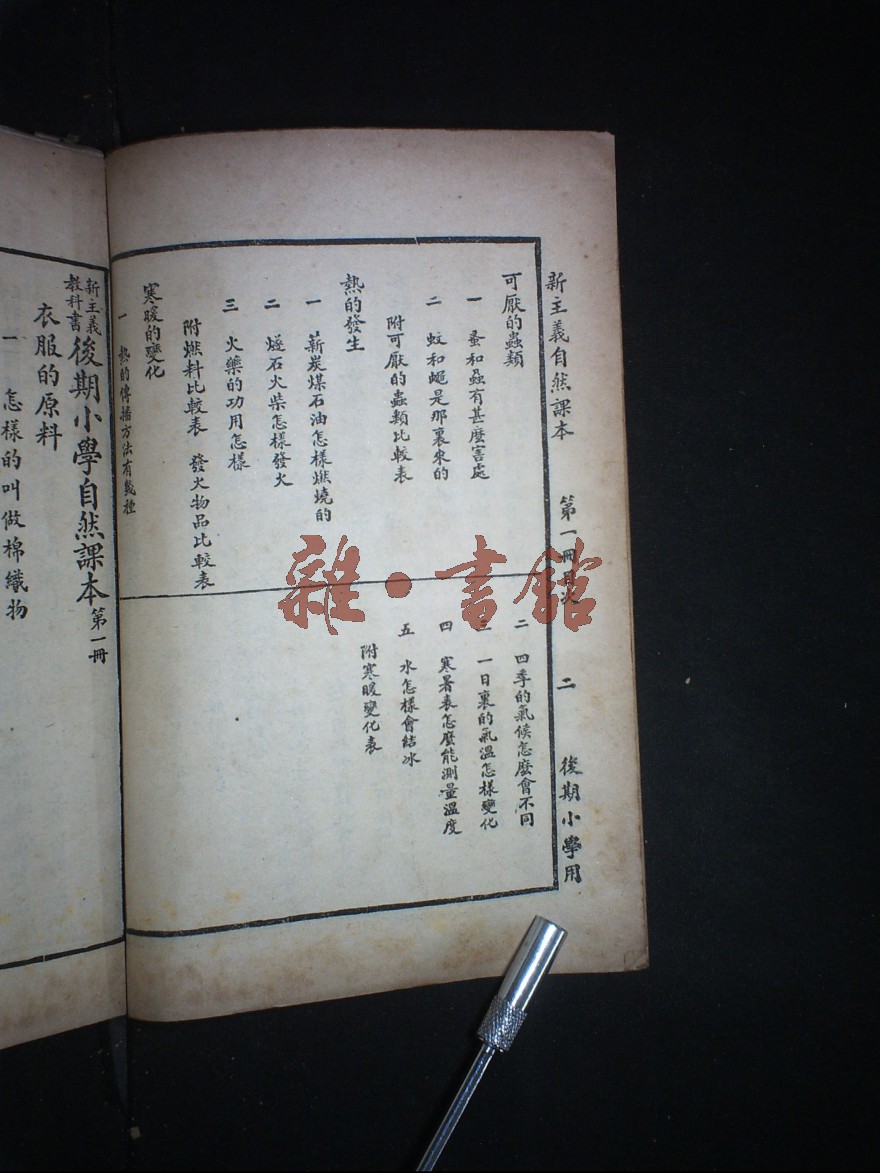 新主義自然課本 第一冊目次 二 後期小學用
可厭的蟲類
一 蚤和蝨有甚麼害處
二 蚊和蠅是那裏來的
附可厭的蟲類比較表
熱的發生
一 薪炭煤石油怎樣燃燒的
二 燧石火柴怎樣發火
三 火藥的功用怎樣
附燃料比較表 發火物品比較表
寒暖的變化
一 熱的傳播方法有幾種
二 四季的氣候怎麼會不同
三 一日裏的氣溫怎樣變化
四 寒暑表怎麼能測量溫度
五 水怎樣會結冰
附寒暖變化表
新主義教科書 後期小學自然課本 第一冊
衣服的原料
一 怎樣的叫做棉織物
雜·書館